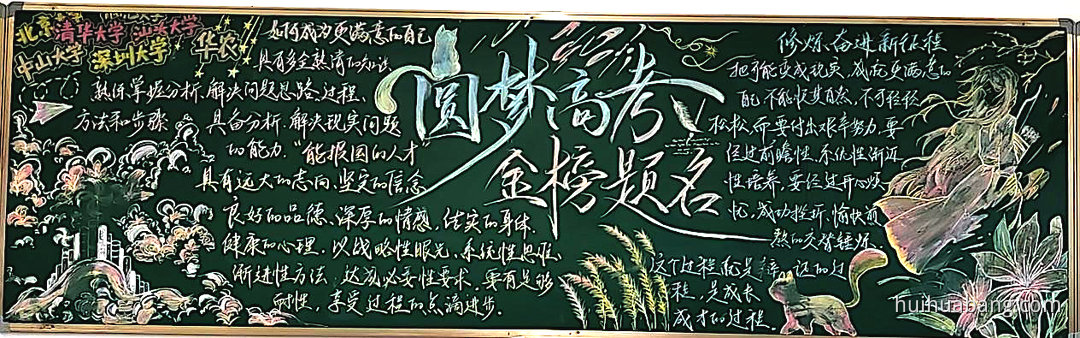 北京 清华大学 汕头大学
中山大学 深圳大学 华农
如何成为更满意的自己
具有多全熟清的知识
熟练掌握分析、解决问题思路、过程、
方法和步骤 具备分析、解决现实问题
的能力。“能报国的人才”
具有远大的志向、坚定的信念
良好的品德、深厚的情感、结实的身体、
健康的心理。以战略性眼光、系统性思维、
渐进性方法、达成必要性要求。要有足够
耐性，享受过程的点滴进步。
圆梦高考
金榜题名
修炼、奋进新征程
把可能变成现实，成就更满意的
自己，不能收其自态，不可轻轻
松松，而要付出艰辛努力，要
经过前瞻性、系统性、渐近
性培养，要经过开心烦
忧，成功挫折，愉快煎
熬的交替锤炼。
这个过程就是
的过
程，是成长
成才的过程。
huihuabang.com